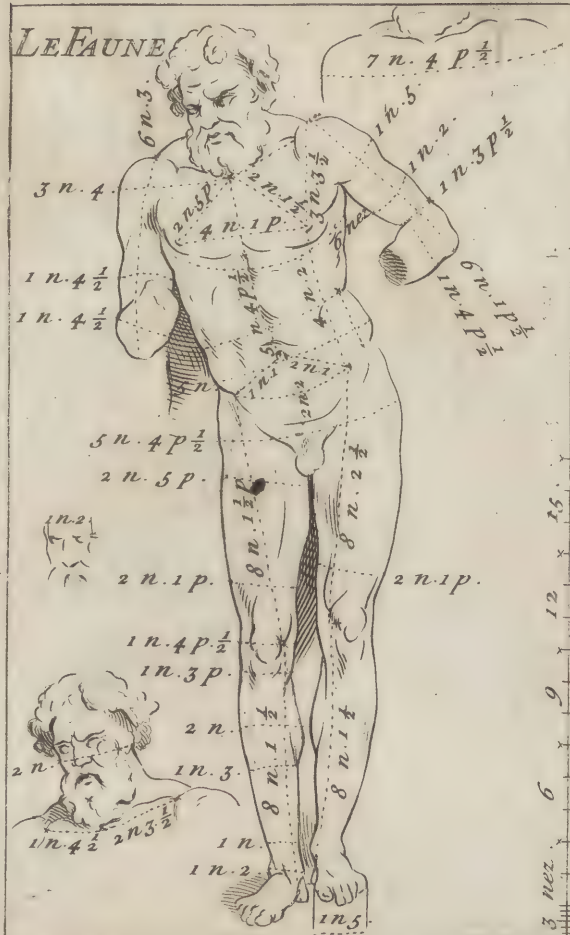 LE FAUNE
7 n. 4 p ½
6 n. 3
1 n. 5
1 n. 2.
1 n. 3 p ½
3 n. 4
2 n 5 p
2 n. 1
3 n. 3 ½
4 n. 1 p
6 nez
1 n. 4 ½
1 n. 4 ½
n. 4 p ½
4 n. 2
6 n. 1 p ½
1 n 4 p ½
5 n.
1 n 1
2 n 1
2 n 2
5 n. 4 p ½
2 n. 5 p.
8 n. 1 ½ p
8 n. 2 ½
1 n. 2
2 n. 1 p.
2 n. 1 p.
1 n. 4 p. ½
1 n. 3 p.
2 n.
1 n. 3
8 n. 1 ½
8 n. 1 ½
2 n.
1 n. 4 ½
2 n 3 ½
1 n.
1 n. 2
1 n 5.
15.
12
9
6
3 nez.